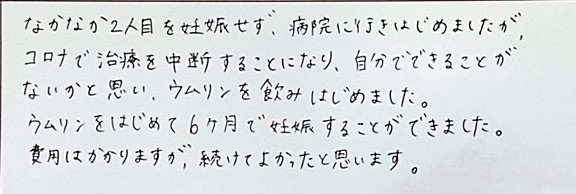 なかなか2人目を妊娠せず、病院に行きはじめましたが、
コロナで治療を中断することになり、自分でできることが
ないかと思い、ウムリンを飲みはじめました。
ウムリンをはじめて6ケ月で妊娠することができました。
費用はかかりますが、続けてよかったと思います。